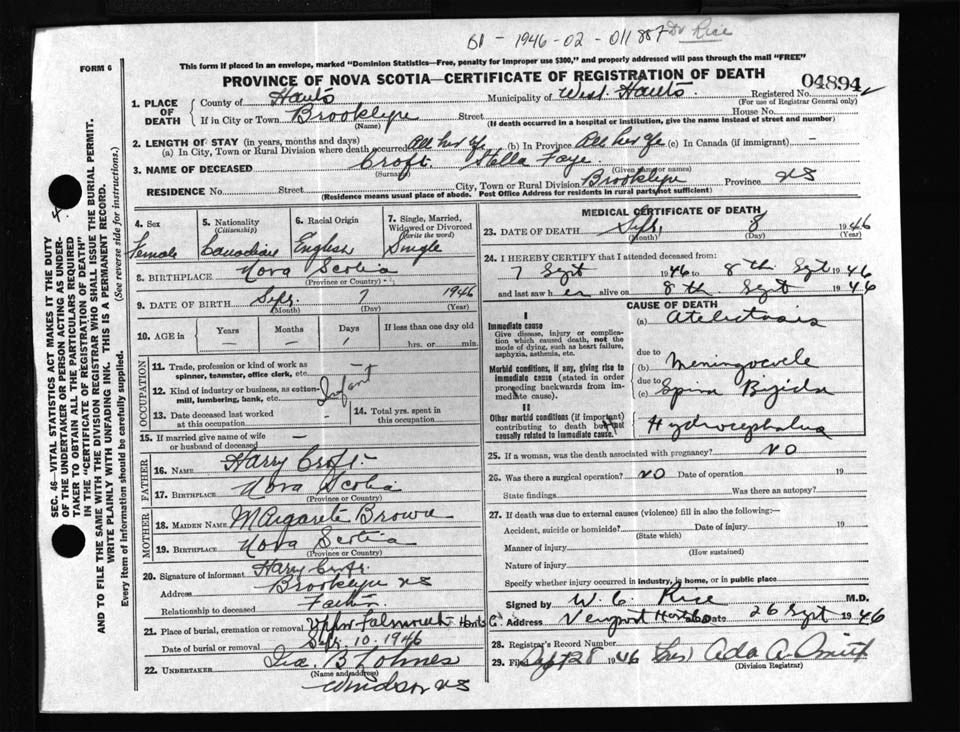 61 - 1946-02-011887 Dr Rice
FORM 6
This form if placed in an envelope, marked "Dominion Statistics—Free, penalty for improper use $300," and properly addressed will pass through the mail "FREE"
PROVINCE OF NOVA SCOTIA—CERTIFICATE OF REGISTRATION OF DEATH
04894
1. PLACE OF DEATH
County of Hants Municipality of West Hants Registered No.
(For use of Registrar General only)
If in City or Town Brooklyn Street House No.
(Name) (If death occurred in a hospital or institution, give the name instead of street and number)
2. LENGTH OF STAY (in years, months and days)
(a) In City, Town or Rural Division where death occurred All her life (b) In Province All her life (c) In Canada (if immigrant) —
3. NAME OF DECEASED Croft Stella Faye
(Surname) (Given name or names)
RESIDENCE No. Street City, Town or Rural Division Brooklyn Province NS
(Residence means usual place of abode. Post Office Address for residents in rural parts not sufficient)
4. Sex Female
5. Nationality (Citizenship) Canadian
6. Racial Origin English
7. Single, Married, Widowed or Divorced (write the word) Single
8. BIRTHPLACE Nova Scotia
(Province or Country)
9. DATE OF BIRTH Sept. 7 1946
(Month) (Day) (Year)
10. AGE in Years Months Days If less than one day old
— — 1 hrs. or min.
OCCUPATION
11. Trade, profession or kind of work as spinner, teamster, office clerk, etc. —
12. Kind of industry or business, as cotton-mill, lumbering, bank, etc. Infant
13. Date deceased last worked at this occupation —
14. Total yrs. spent in this occupation
15. If married give name of wife or husband of deceased —
FATHER
16. NAME Harry Croft
17. BIRTHPLACE Nova Scotia
(Province or Country)
MOTHER
18. MAIDEN NAME Margarete Brown
19. BIRTHPLACE Nova Scotia
(Province or Country)
20. Signature of informant Harry Croft
Address Brooklyn NS
Relationship to deceased Father
21. Place of burial, cremation or removal Upper Falmouth Hants Co
Date of burial or removal Sept. 10. 1946
22. UNDERTAKER Geo. B Lohnes
(Name and address)
Windsor NS
MEDICAL CERTIFICATE OF DEATH
23. DATE OF DEATH Sept. 8 1946
(Month) (Day) (Year)
24. I HEREBY CERTIFY that I attended deceased from:
7 Sept 1946 to 8th Sept 1946
and last saw her alive on 8th. Sept 1946
CAUSE OF DEATH
I
Immediate cause
Give disease, injury or complication which caused death, not the mode of dying, such as heart failure, asphyxia, asthenia, etc.
(a) Atelectasis
due to
Morbid conditions, if any, giving rise to immediate cause (stated in order proceeding backwards from immediate cause).
(b) Meningocele
due to
(c) Spina Bifida
II
Other morbid conditions (if important) contributing to death but not causally related to immediate cause.
Hydrocephalus
25. If a woman, was the death associated with pregnancy? NO
26. Was there a surgical operation? NO Date of operation 19
State findings Was there an autopsy?
27. If death was due to external causes (violence) fill in also the following:—
Accident, suicide or homicide? Date of injury 19
(State which)
Manner of injury
(How sustained)
Nature of injury
Specify whether injury occurred in industry, in home, or in public place
Signed by W. C. Rice M.D.
Address Newport Hants Co Date 26 Sept 1946
28. Registrar's Record Number
29. Filed Sept 28 1946 Ada A. Smith
(Division Registrar)
SEC. 46—VITAL STATISTICS ACT MAKES IT THE DUTY
OF THE UNDERTAKER OR PERSON ACTING AS UNDER-
TAKER TO OBTAIN ALL THE PARTICULARS REQUIRED
IN THE "CERTIFICATE OF REGISTRATION OF DEATH"
AND TO FILE THE SAME WITH THE DIVISION REGISTRAR WHO SHALL ISSUE THE BURIAL PERMIT.
WRITE PLAINLY WITH UNFADING INK. THIS IS A PERMANENT RECORD.
Every item of information should be carefully supplied. (See reverse side for instructions.)